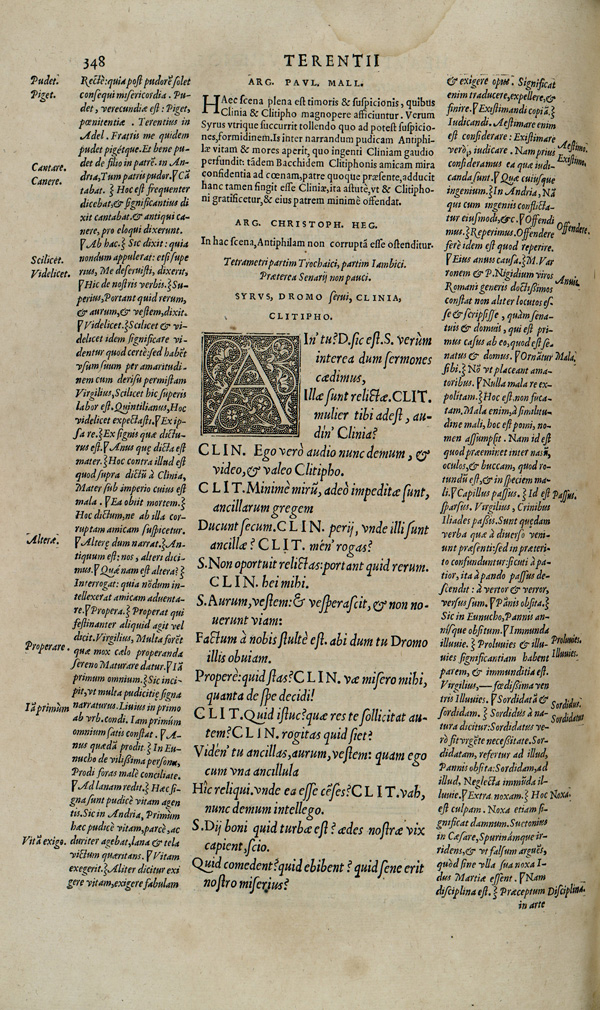 348
TERENTII
Pudet.
Piget.
Cantare.
Canere.
Scilicet.
Videlicet.
Alteræ.
Properare.
Iã primùm
Vitã exigo.
Rectè: quia post pudorẽ solet
consequi misericordia. Pu-
det, verecundiæ est: Piget,
pœnitentiæ. Terentius in
Adel. Fratris me quidem
pudet pigétque. Et bene pu-
det de filio in patrẽ. in An-
dria, Tum patris pudor. ¶Cã
tabat. } Hoc est frequenter
dicebat, & significantius di
xit cantabat. & antiqui ca-
nere, pro eloqui dixerunt.
¶Ab hac. } Sic dixit: quia
nondum appulerat: etsi supe
rius, Me deseruisti, dixerit,
¶Hic de nostris verbis. } Su-
perius, Portant quid rerum,
& aurum, & vestem, dixit.
¶Videlicet. } Scilicet & vi-
delicet idem significare vi-
dentur quod certè: sed habẽt
vsum suum per amaritudi-
nem cum derisu permistam
Virgilius, Scilicet hic superis
labor est. Quintilianus, Hoc
videlicet expectasti. ¶Ex ip-
sa re. } Ex signis quæ dictu-
rus est. ¶Anus quę dicta est
mater. } Hoc contra illud est
quod supra dictũ à Clinia,
Mater sub imperio cuius est
mala. ¶Ea obiit mortem. }
Hoc dictum, ne ab illa cor-
ruptam amicam suspicetur.
¶Alterę dum narrat. } An-
tiquum est: nos, alteri dici-
mus. ¶Quænam est altera? }
Interrogat: quia nõdum in-
tellexerat amicam aduenta-
re. ¶Propera. } Properat qui
festinanter aliquid agit vel
dicit. Virgilius, Multa forẽt
quæ mox cælo properanda
sereno Maturare datur. ¶Iã
primum omnium. } Sic inci-
pit, vt multa pudicitię signa
narraturus. Liuius in primo
ab vrb. cond. Iam primùm
omnium satis constat. ¶A-
nus quædã prodit } In Eu-
nucho de vilissima persona,
Prodi foras malè conciliate.
¶Ad lanam redit. } Hæc si-
gna sunt pudicè vitam agen
tis. Sic in Andria, Primum
hæc pudicè vitam, parcè, ac
duriter agebat, lana & tela
victum quæritans. ¶Vitam
exegerit. } Aliter dicitur exi
gere vitam, exigere fabulam
ARG. PAVL. MALL.
HAec scena plena est timoris & suspicionis, quibus
Clinia & Clitipho magnopere afficiuntur. Verum
Syrus vtrique succurrit tollendo quo ad potest suspicio-
nes, formidinem. Is inter narrandum pudicam Antiphi-
læ vitam & mores aperit, quo ingenti Cliniam gaudio
perfundit: tãdem Bacchidem Clitiphonis amicam mira
confidentia ad cœnam, patre quoque præsente, adducit
hanc tamen fingit esse Cliniæ, ita astutè, vt & Clitipho-
ni gratificetur, & eius patrem minimè offendat.
ARG. CHRISTOPH. HEG.
In hac scena, Antiphilam non corruptã esse ostenditur.
Tetrametri partim Trochaici, partim Iambici.
Præterea Senarij non pauci.
SYRVS, DROMO serui, CLINIA,
CLITIPHO.
AIn' tu? D. sic est. S. verùm
interea dum sermones
cædimus,
Illæ sunt relictæ. CLIT.
mulier tibi adest, au-
din' Clinia?
CLIN. Ego verò audio nunc demum, &
video, & valeo Clitipho.
CLIT. Minimè mirũ, adeò impeditæ sunt,
ancillarum gregem
Ducunt secum. CLIN. perij, vnde illi sunt
ancillæ? CLIT. mén' rogas?
S. Non oportuit relictas: portant quid rerum.
CLIN. hei mihi.
S. Aurum, vestem: & vesperascit, & non no-
uerunt viam:
Factum à nobis stultè est. abi dum tu Dromo
illis obuiam.
Properè: quid stas? CLIN. væ misero mihi,
quanta de spe decidi!
CLIT. Quid istuc? quæ res te sollicitat au-
tem? CLIN. rogitas quid siet?
Vidén' tu ancillas, aurum, vestem: quam ego
cum vna ancillula
Hîc reliqui. vnde ea esse cẽses? CLIT. vah,
nunc demum intellego.
S. Dij boni quid turbæ est? ædes nostræ vix
capient, scio.
Quid comedent? quid ebibent? quid sene erit
nostro miserius?
& exigere opus. Significat
enim traducere, expellere, &
finire. ¶Existimandi copiã. }
Iudicandi. Aestimare enim
est considerare: Existimare
verò, iudicare. Nam prius
consideramus ea quæ iudi-
canda sunt. ¶Quæ cuiusque
ingenium. } In Andria, Nã
qui cum ingeniis conflicta-
tur eiusmodi, &c. ¶Offendi
mus. } Reperimus. Offendere
ferè idem est quod reperire.
¶Eius anus causa. } M. Var
ronem & P. Nigidium viros
Romani generis doctissimos
constat non aliter locutos es-
se & scripsisse, quàm sena-
tuis & domuis, qui est pri-
mus casus ab eo, quod est se-
natus & domus. ¶Ornãtur
sibi. } Nõ vt placeant ama-
toribus. ¶Nulla mala re ex-
politam. } Hoc est. non fuca-
tam, Mala enim, à similitu-
dine mali, hoc est pomi, no-
men assumpsit. Nam id est
quod præeminet inter nasũ,
oculos, & buccam, quod ro-
tundũ est, & in speciem ma-
li. ¶Capillus passus. } Id est
sparsus. Virgilius, Crinibus
Iliades passis. Sunt quædam
verba quæ à diuerso veni-
unt præsenti: sed in præteri-
to confunduntur: sicuti à pa-
tior, ita à pando passus de-
scendit: à vertor & verror,
versus sum. ¶Pãnis obsita. }
Sic in Eunucho, Pannis an-
nisque obsitum. ¶Immunda
illuuie. } Prolouies & illu-
uies significantiam habent
parem, & immunditia est.
Virgilius,—fœdissima ven
tris Illuuies. ¶Sordidatã &
sordidam. } Sordidus à na-
tura dicitur: Sordidatus ve-
rò fit vrgẽte necessitate. Sor-
didatam, refertur ad illud,
Pannis obsita: Sordidam, ad
illud, Neglecta immũda il-
luuie. ¶Extra noxam. } Hoc
est culpam. Noxa etiam si-
gnificat damnum. Suetonius
in Cæsare, Spurinámque ir-
ridens, & vt falsum arguẽs,
quòd sine vlla sua noxa I-
dus Martiæ essent. ¶Nam
disciplina est. } Præceptum
in arte
Aestimo.
Existimo.
Offendere.
Anuis.
Mala.
Passus.
Prolouies.
Illuuies.
Sordidus.
Sordidatus
Noxa.
Disciplina.